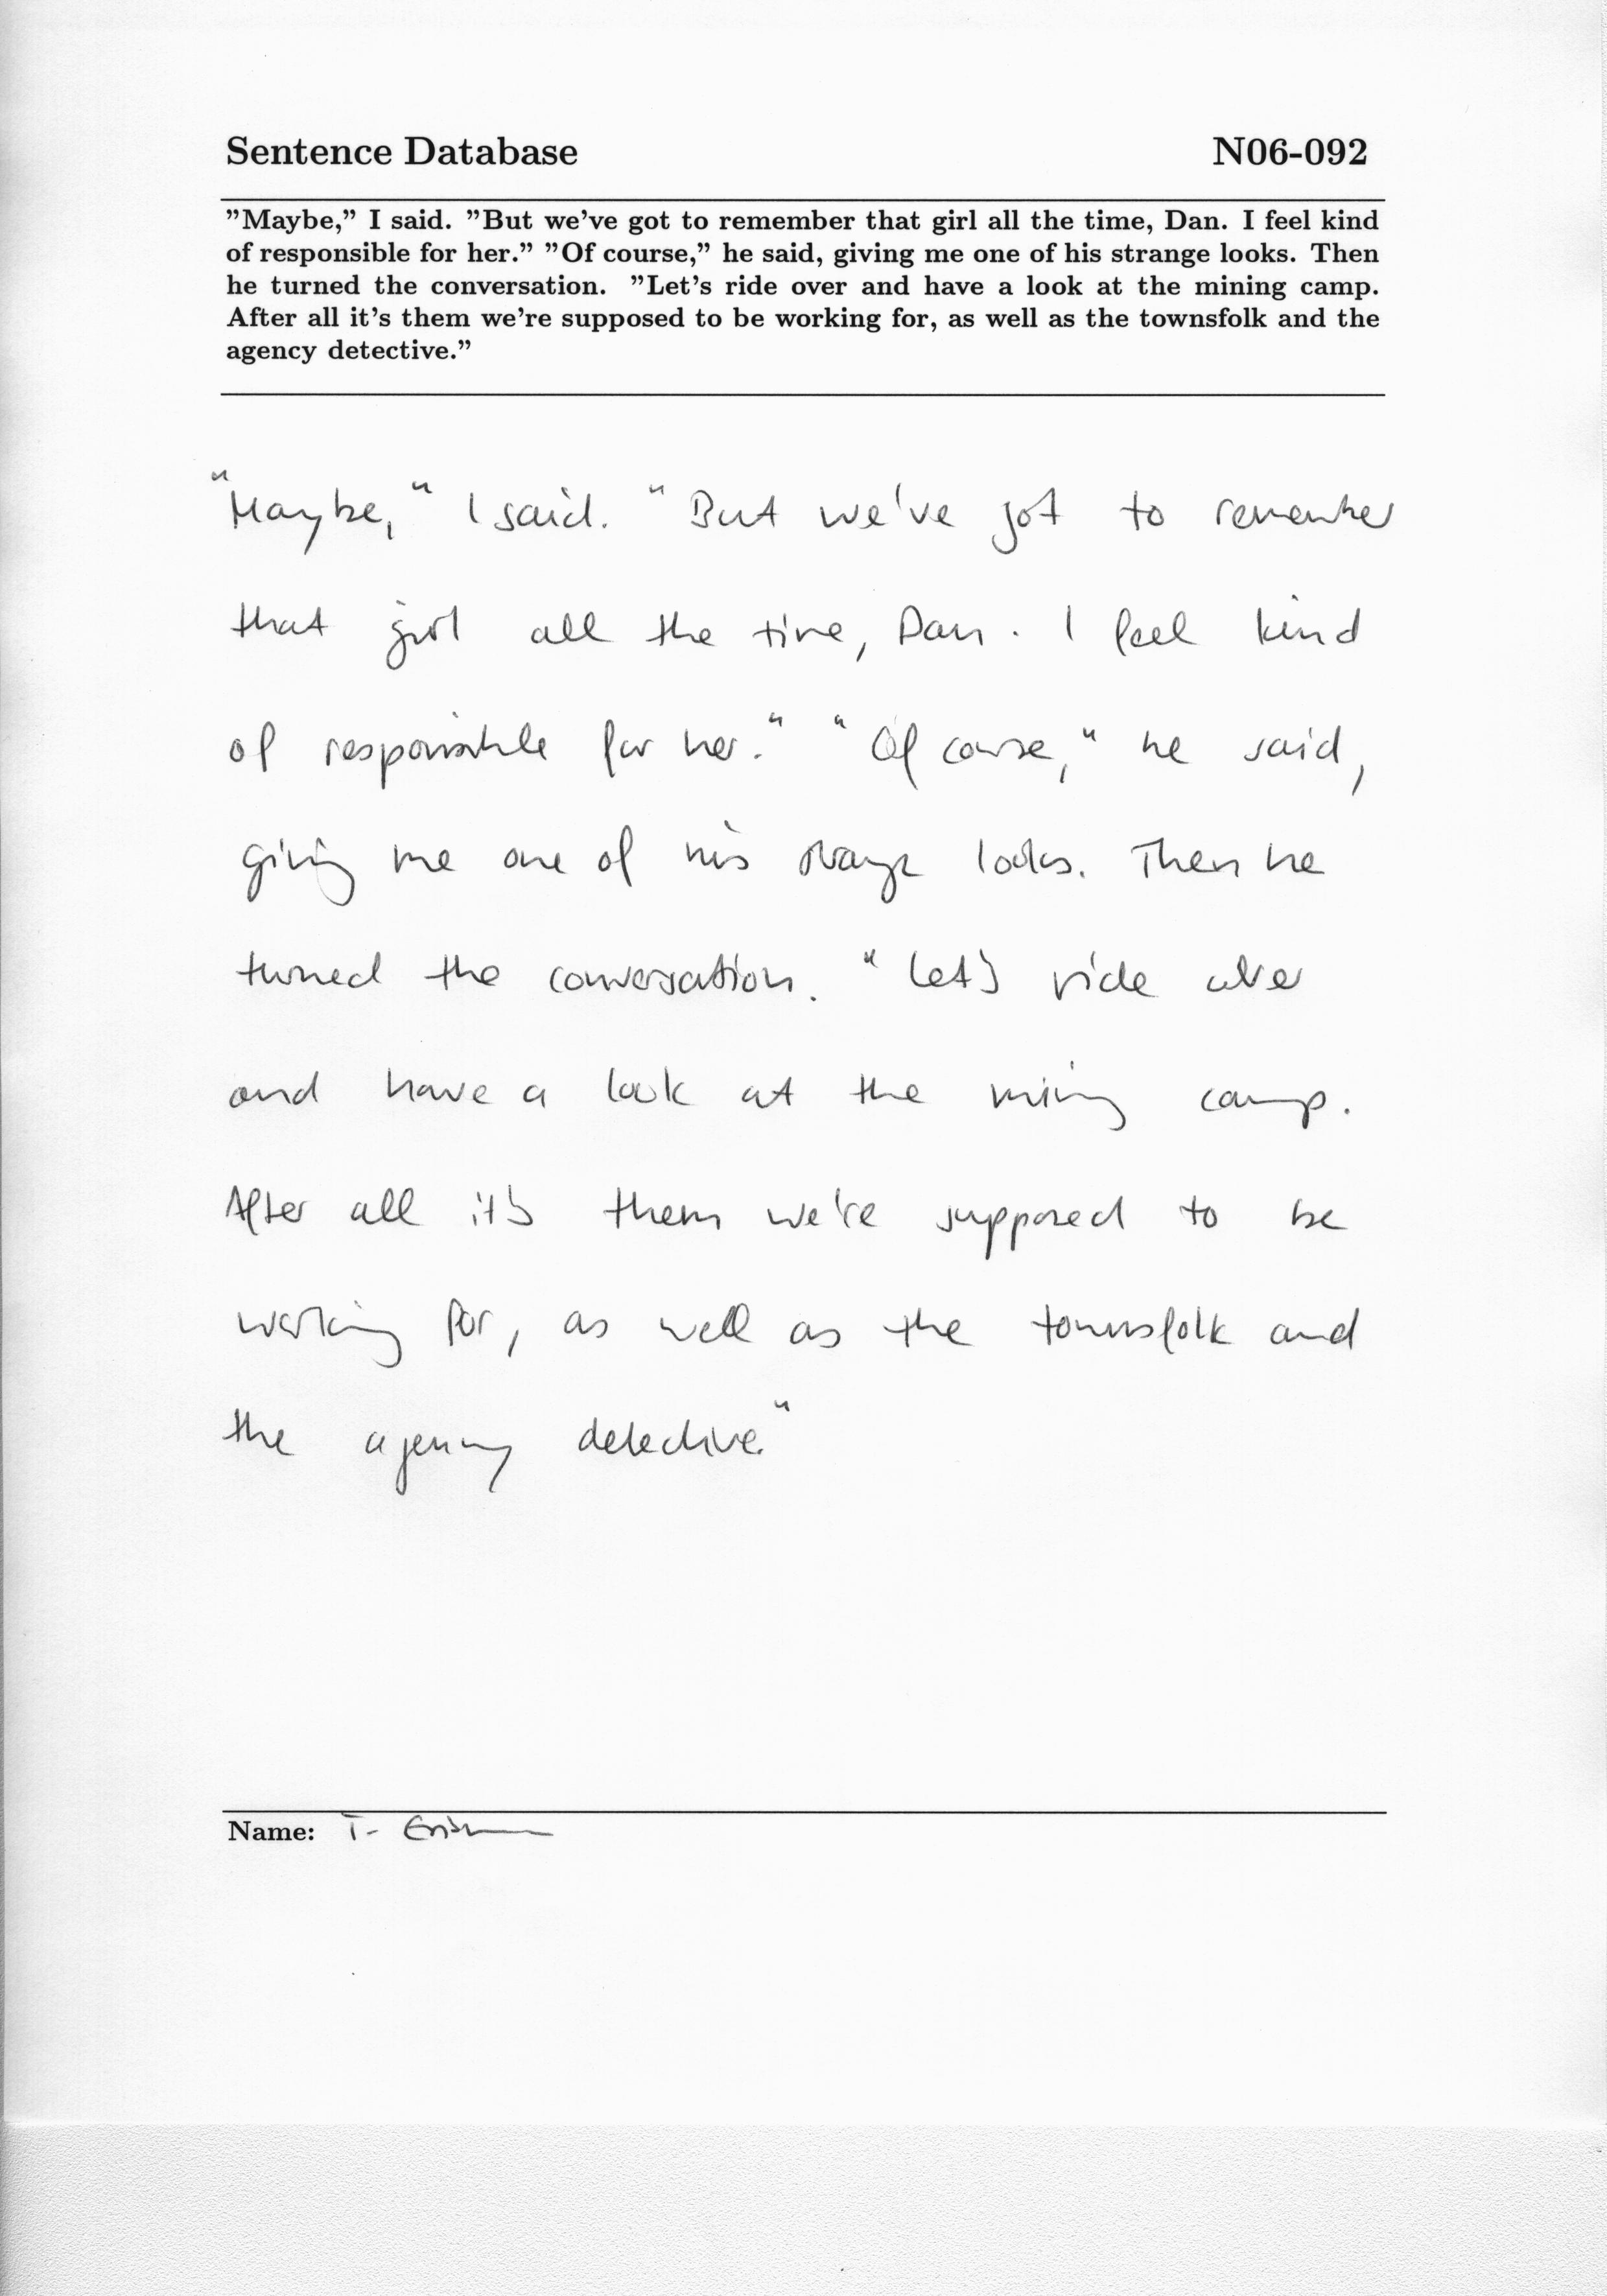 Sentence Database N06-092
"Maybe," I said. "But we've got to remember that girl all the time, Dan. I feel kind
of responsible for her." "Of course," he said, giving me one of his strange looks. Then
he turned the conversation. "Let's ride over and have a look at the mining camp.
After all it's them we're supposed to be working for, as well as the townsfolk and the
agency detective."
"Maybe," I said. "But we've got to remember
that girl all the time, Dan. I feel kind
of responsible for her." "Of course," he said,
giving me one of his strange looks. Then he
turned the conversation. "Let's ride over
and have a look at the mining camp.
After all it's them we're supposed to be
working for, as well as the townsfolk and
the agency detective."
Name: T.